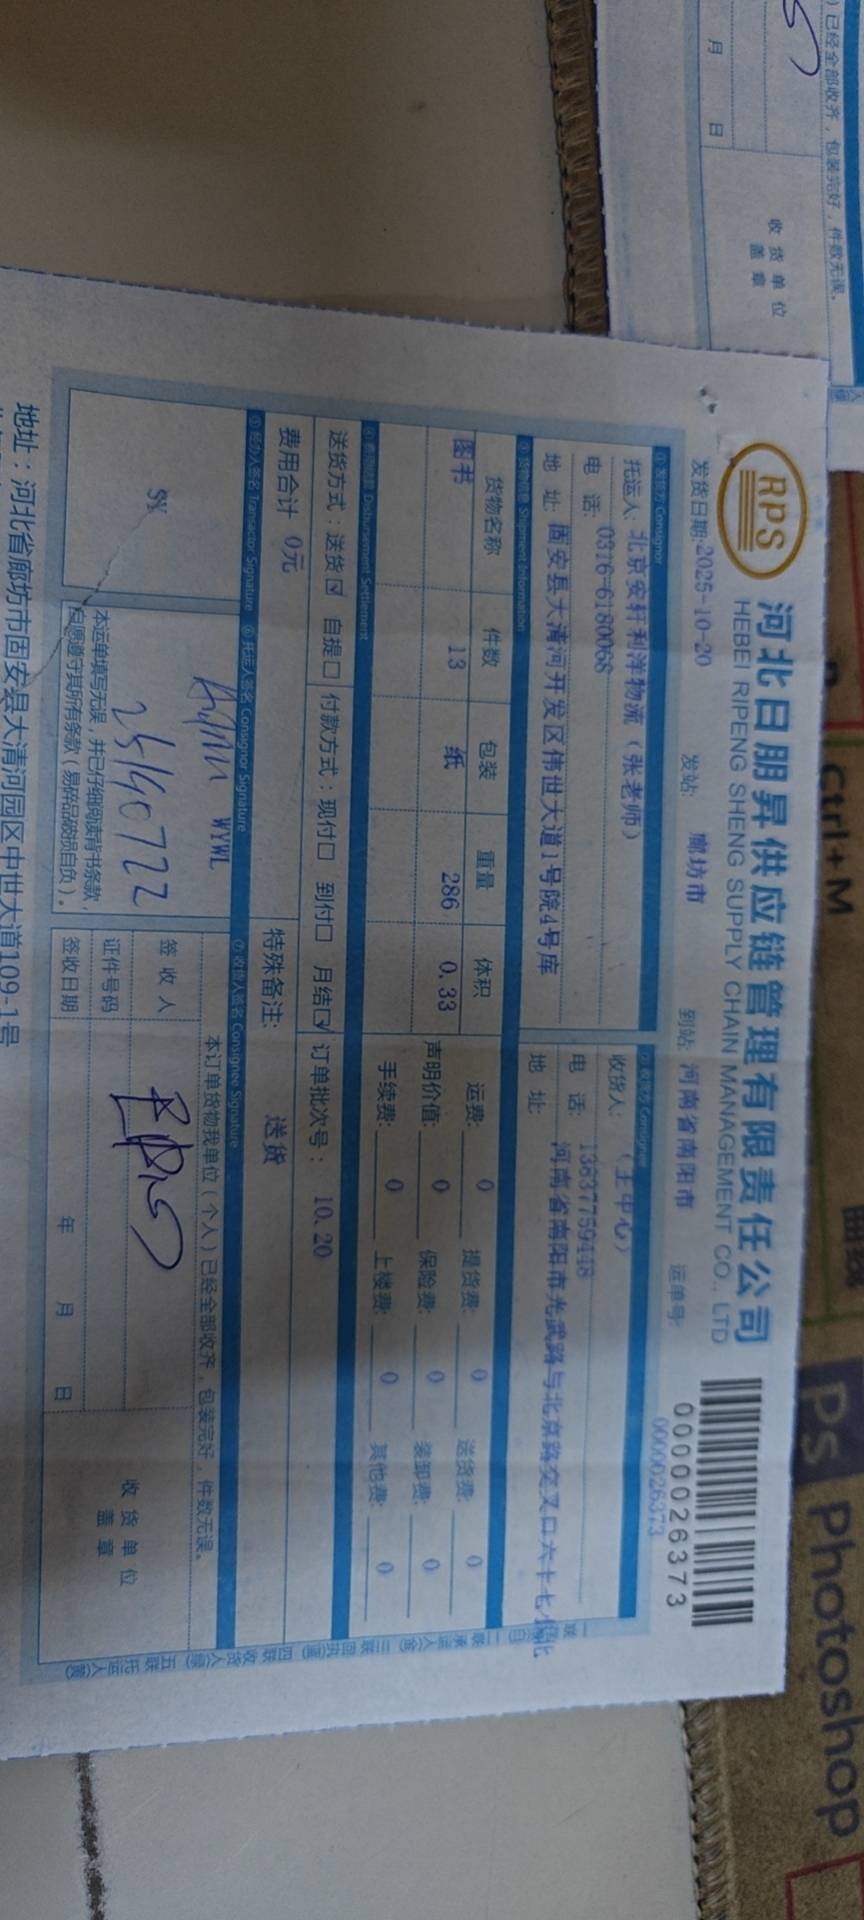 RPS
河北日朋昇供应链管理有限责任公司
HEBEI RIPENG SHENG SUPPLY CHAIN MANAGEMENT CO., LTD
0000026373
发货日期:2025-10-20 发站: 廊坊市 到站: 河南省南阳市 运单号: 0000026373
①发货方 Consignor ②收货方 Consignee
托运人: 北京安轩利洋物流（张老师） 收货人: （王中心）
电 话: 0316-6180068 电 话: 13637759448
地 址: 固安县大清河开发区伟世大道1号院4号库 地 址: 河南省南阳市光武路与北京路交叉口六十七小
③货物信息 Shipment Information
货物名称 件数 包装 重量 体积 运费: 0 提货费: 0 送货费: 0
图书 13 纸 286 0.33 声明价值: 0 保险费: 0 装卸费: 0
手续费: 0 上楼费: 0 其他费: 0
④费用结算 Disbursement Settlement
送货方式：送货☑ 自提☐ 付款方式：现付☐ 到付☐ 月结☑ 订单批次号： 10.20
费用合计 0元 特殊备注: 送货
⑤经办人签名 Transactor Signature ⑥托运人签名 Consignor Signature ⑦收货人签名 Consignee Signature
SY
WYWL
25140722
本运单填写无误，并已仔细阅读背书条款，
自愿遵守其所有条款（易碎品破损自负）。
本订单货物我单位（个人）已经全部收齐，包装完好，件数无误。
签 收 人
证件号码
签收日期 年 月 日
收 货 单 位
盖 章
地址：河北省廊坊市固安县大清河园区中世大道109-1号
）已经全部收齐，包装完好，件数无误。
月 日
收 货 单 位
盖 章
Ctrl+M
Ps Photoshop